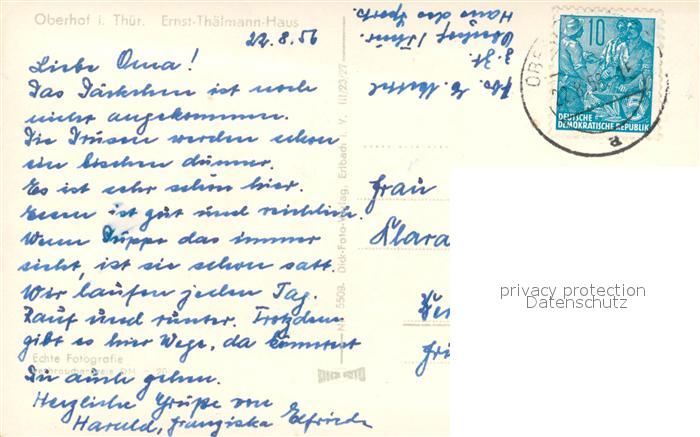 Oberhof i. Thür. Ernst-Thälmann-Haus
22.8.56
Liebe Oma!
Das Päckchen ist noch
nicht angekommen.
Die Drüsen werden schon
ein bischen dünner.
Es ist sehr schön hier.
Essen ist gut und reichlich.
Wenn Puppe das immer
sieht, ist sie schon satt.
Wir laufen jeden Tag.
Rauf und runter. Trotzdem
gibt es hier Wege, da könntest
Du auch gehen.
Herzliche Grüße von
Harald, Franziska Elfriede
Echte Fotografie
Verbraucherpreis DM -.20
Dick-Foto-Verlag, Erlbach i. V. III/23/27
DICK FOTO
z. Zt.
Oberhof / Thür.
Haus des Sports
Frau
Klara
10
DEUTSCHE
DEMOKRATISCHE REPUBLIK
privacy protection
Datenschutz